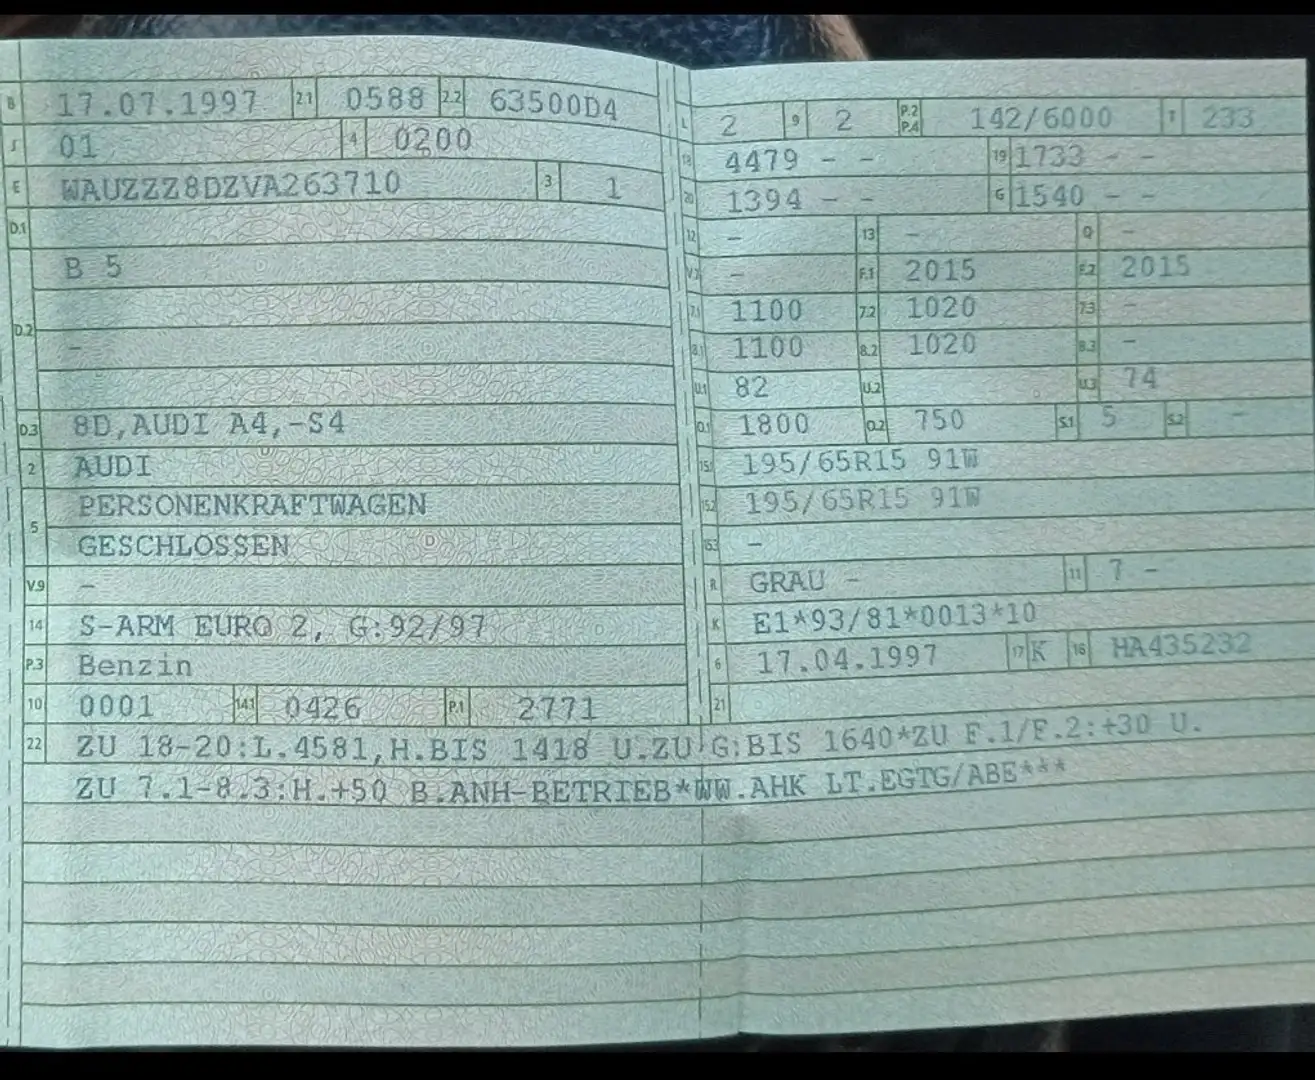 B 17.07.1997 2.1 0588 2.2 63500D4
J 01 4 0200
E WAUZZZ8DZVA263710 3 1
D.1
B 5
D.2 -
D.3 8D,AUDI A4,-S4
2 AUDI
5 PERSONENKRAFTWAGEN
GESCHLOSSEN
V.9 -
14 S-ARM EURO 2, G:92/97
P.3 Benzin
10 0001 14.1 0426 P.1 2771
L 2 9 2 P.2 P.4 142/6000 T 233
18 4479 - - 19 1733 - -
20 1394 - - G 1540 - -
12 - 13 - Q -
V.7 - F.1 2015 F.2 2015
7.1 1100 7.2 1020 7.3 -
8.1 1100 8.2 1020 8.3 -
U.1 82 U.2 U.3 74
O.1 1800 O.2 750 S.1 5 S.2 -
15.1 195/65R15 91W
15.2 195/65R15 91W
15.3 -
R GRAU - 11 7 -
K E1*93/81*0013*10
6 17.04.1997 17 K 16 HA435232
21
22 ZU 18-20:L.4581,H.BIS 1418 U.ZU G:BIS 1640*ZU F.1/F.2:+30 U.
ZU 7.1-8.3:H.+50 B.ANH-BETRIEB*WW.AHK LT.EGTG/ABE***